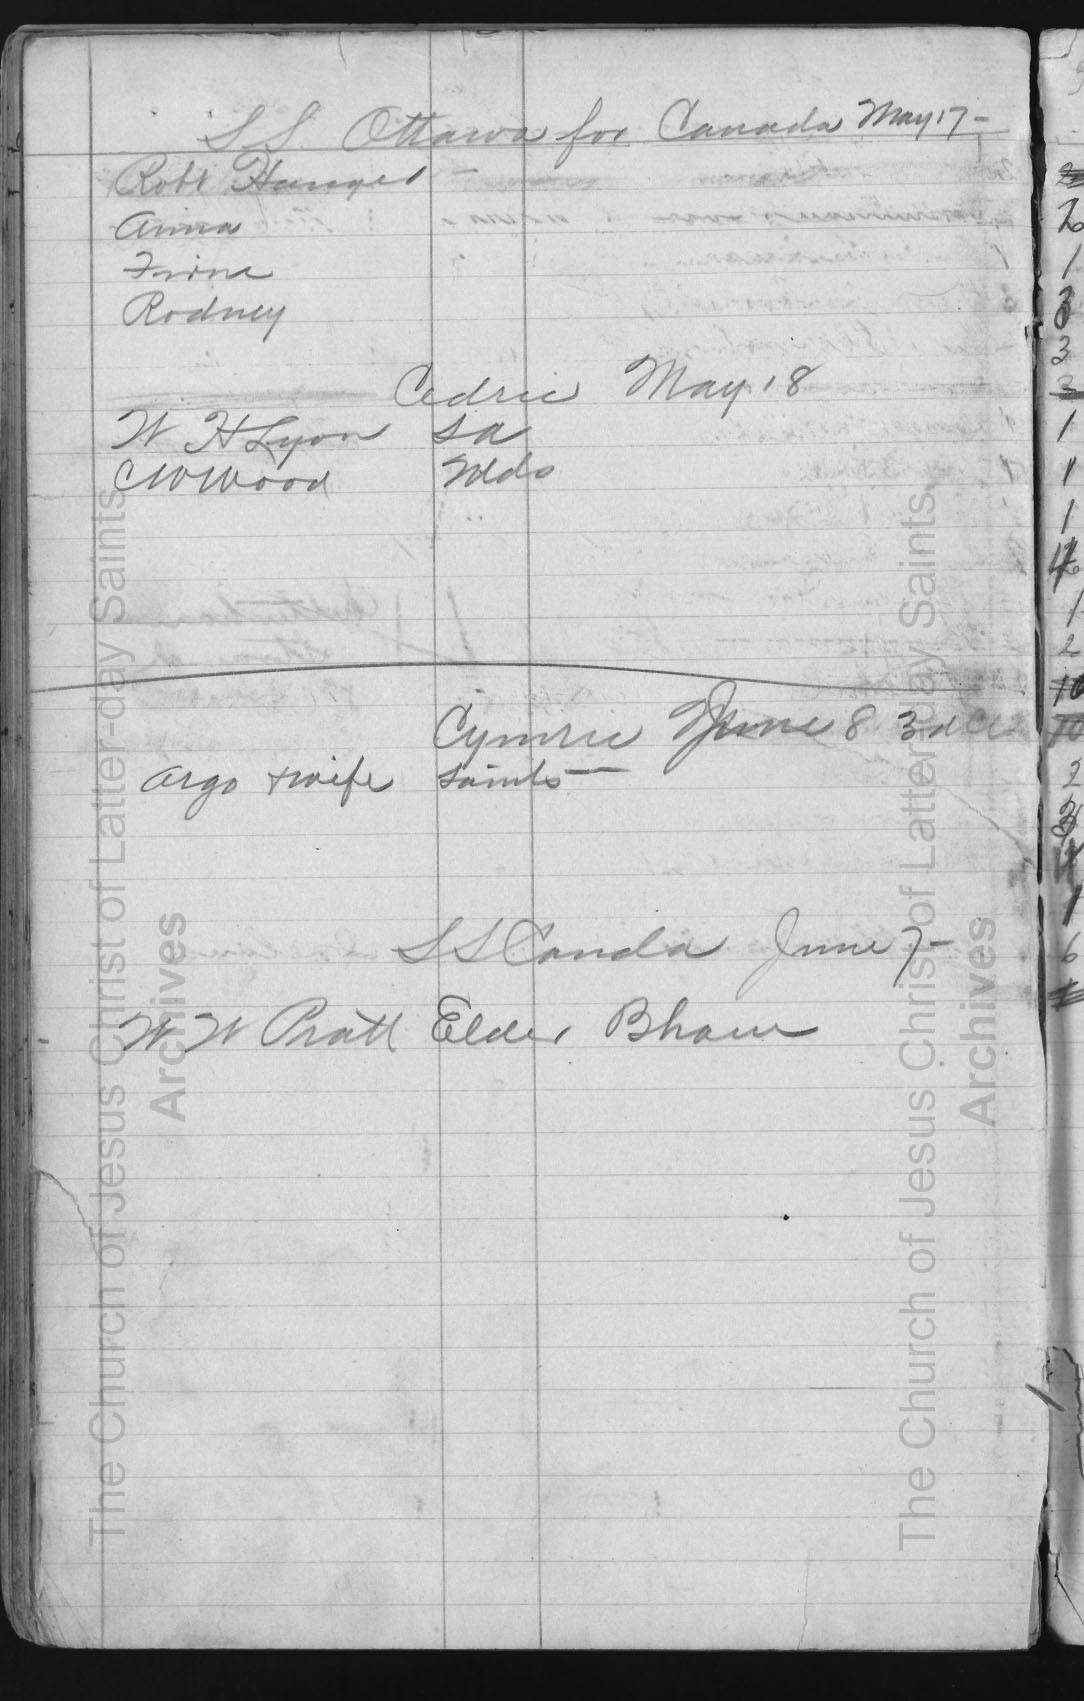 S S. Ottawa for Canada May 17 -
Robt
Anna
Rodney
Cedric May 18
W H Lyon
C W Wood
Cymric June 8 3rd
Argo & wife Saints —
S S Canda June 7 -
W W Pratt Elder Bham
2
1
3
3
3
1
1
1
1
2
10
10
2
1
6
The Church of Jesus Christ of Latter-day Saints
Archives
The Church of Jesus Christ of Latter-day Saints
Archives